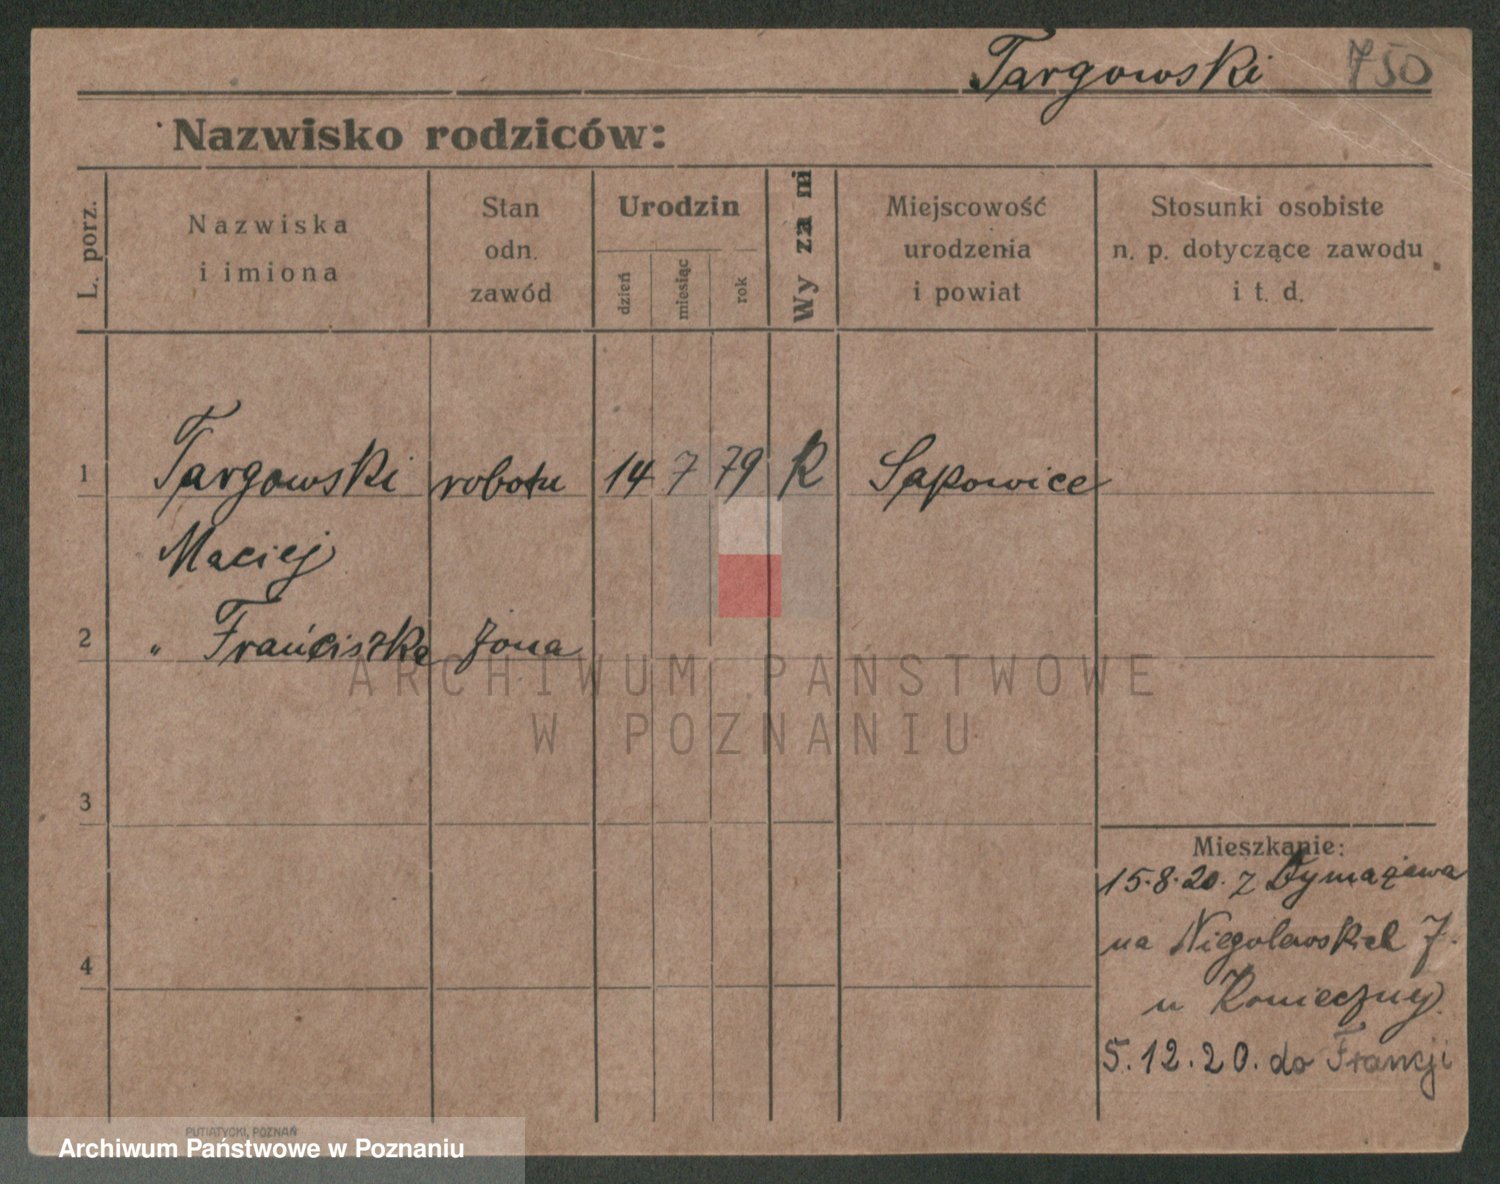 Targowski 750
Nazwisko rodziców:
L. porz.
Nazwiska
i imiona
Stan
odn.
zawód
Urodzin
dzień
miesiąc
rok
Wyzanie
Miejscowość
urodzenia
i powiat
Stosunki osobiste
n. p. dotyczące zawodu
i t. d.
1 Targowski robotn 14 7 79 k Sapowice
Maciej
2 " Franciszka żona
3
Mieszkanie:
15.8.20. z
na Niegolewskich 7.
4
u Konieczny
5.12.20. do Francji
ARCHIWUM PAŃSTWOWE
W POZNANIU
PUTIATYCKI, POZNAŃ
Archiwum Państwowe w Poznaniu